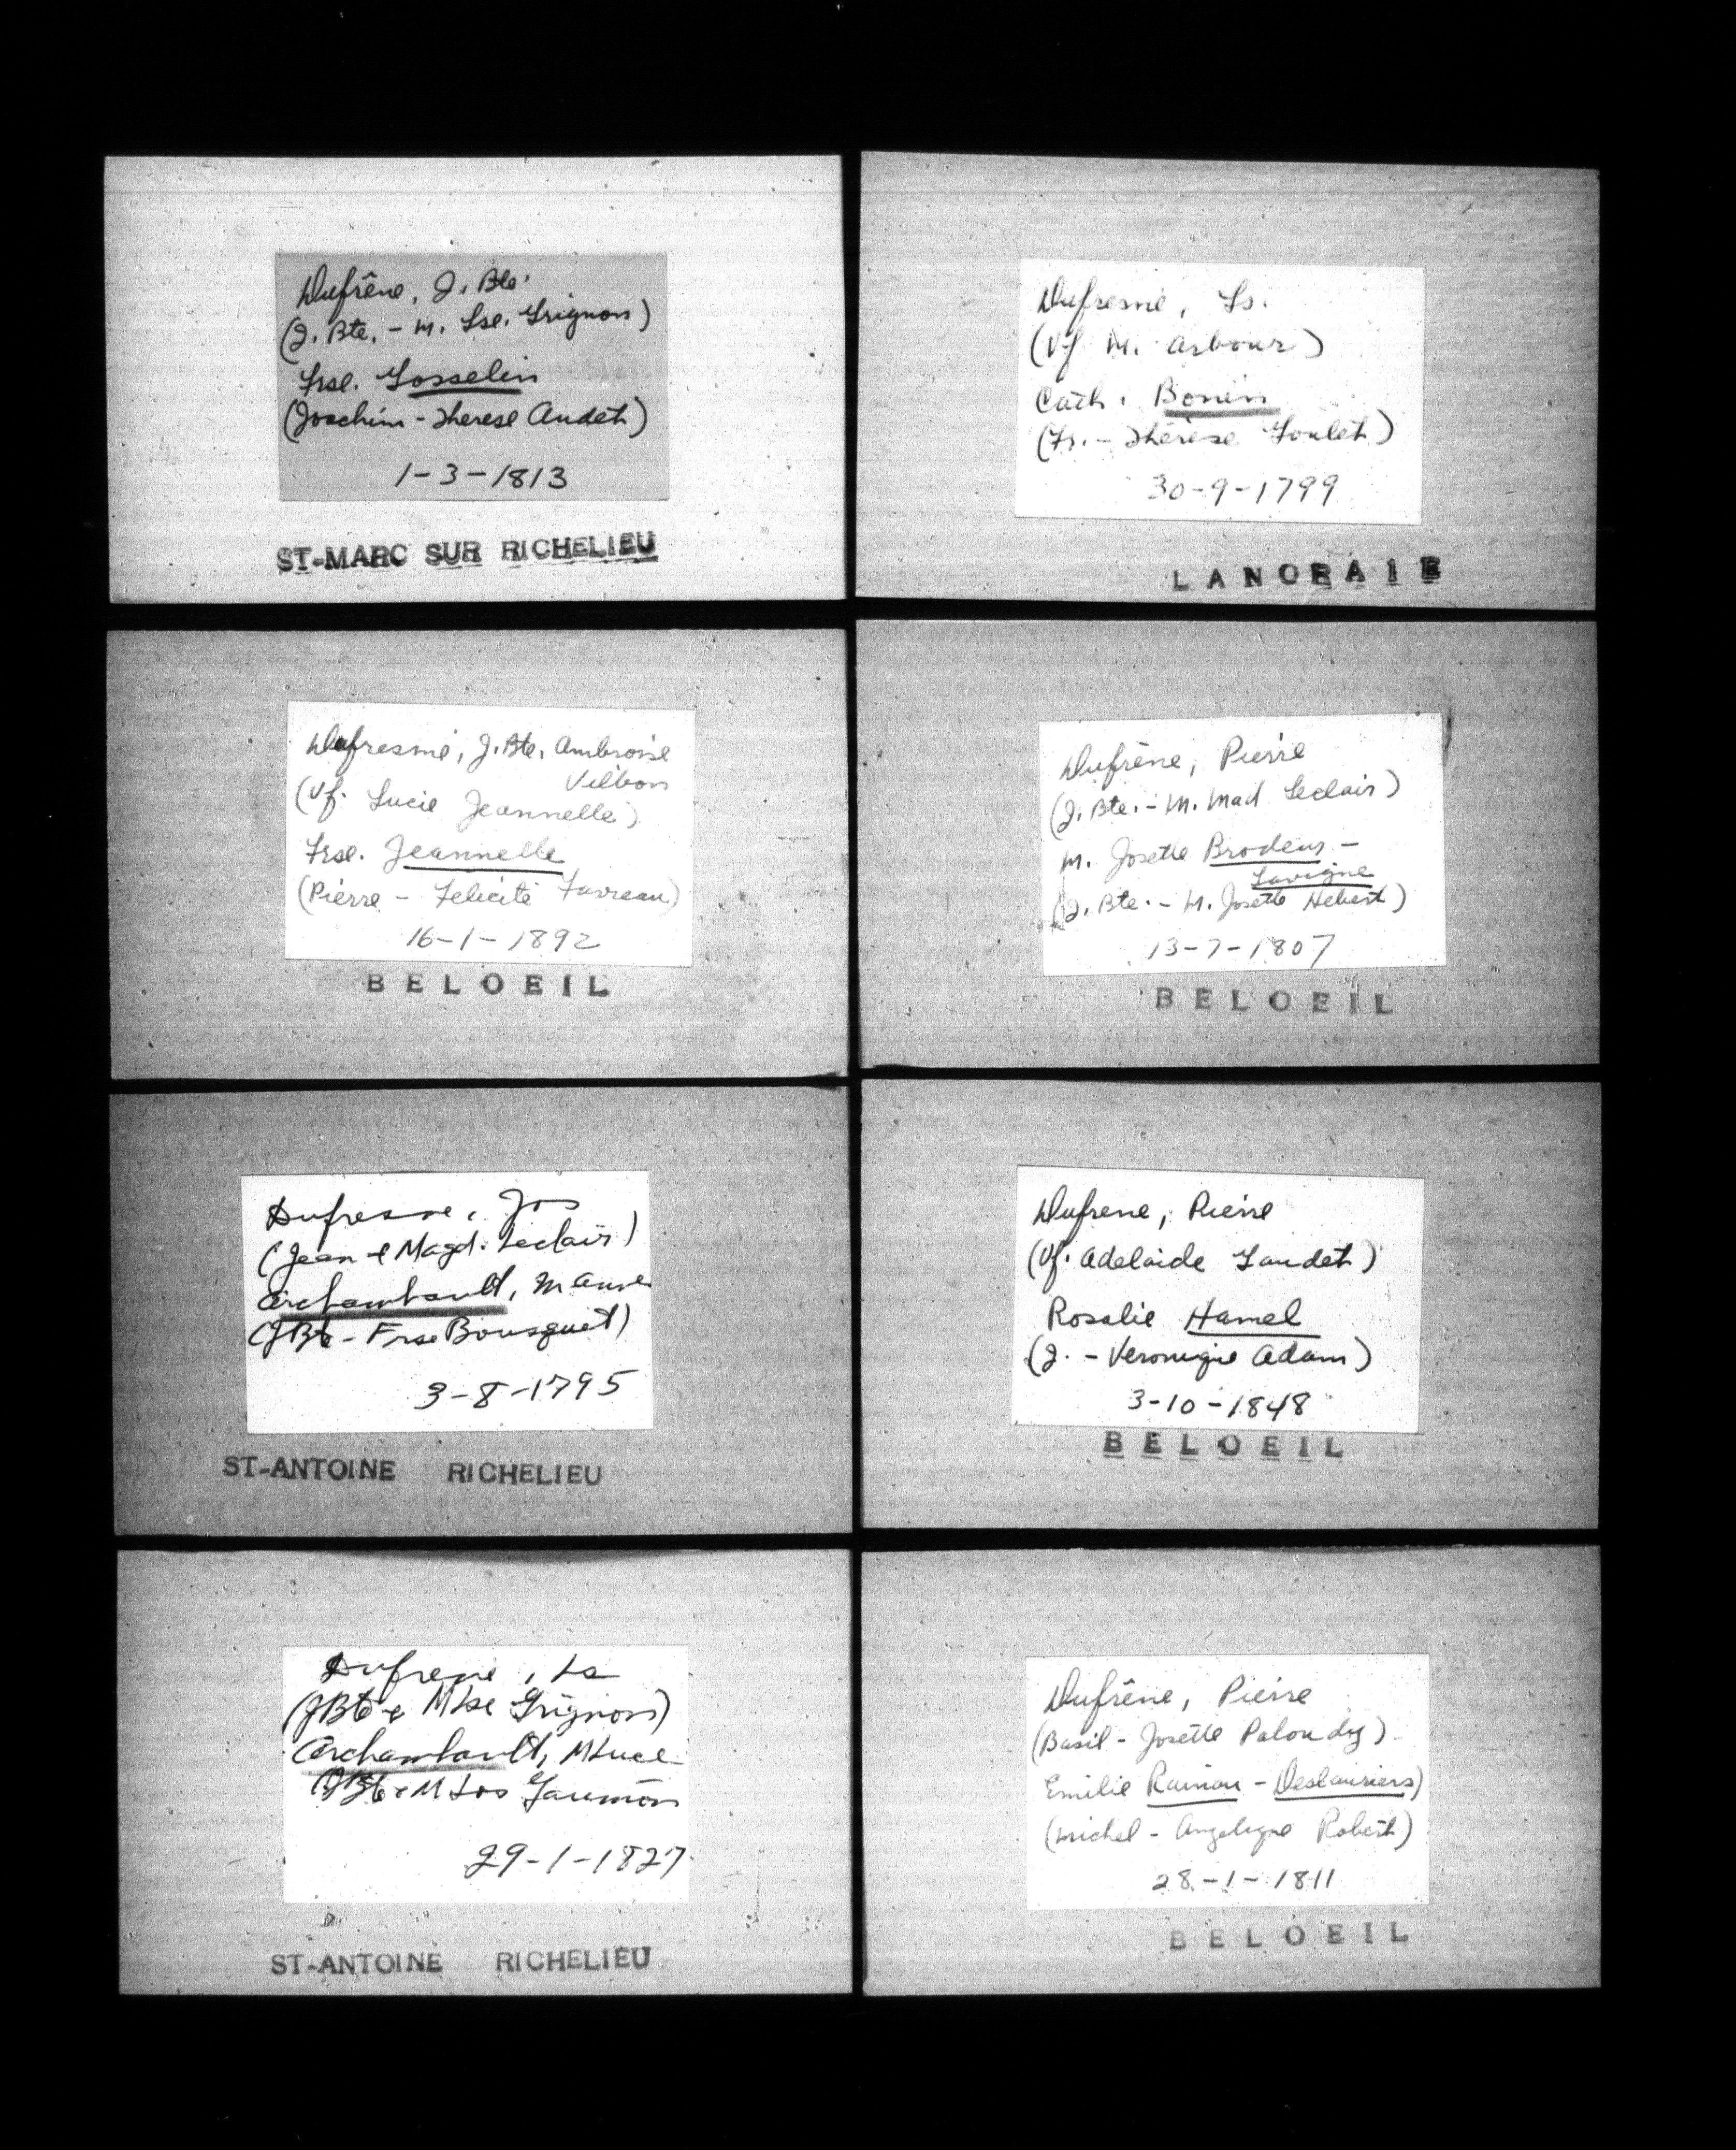 Dufrêne, J. Bte.
(J. Bte. - M. Lse. Grignon)
Frse. Gosselin
(Joachim - Therese Audet)
1-3-1813
ST-MARC SUR RICHELIEU
Dufresne, Ls.
(Vf M. Arbour)
Cath. Bonin
(Fr. - Thérèse Goulet)
30-9-1799
LANORAIE
Dufresne, J. Bte. Ambroise
Vilbon
(Vf. Lucie Jeannelle)
Frse. Jeannelle
(Pierre - Felicité Favreau)
16-1-1892
BELOEIL
Dufrêne, Pierre
(J. Bte. - M. Mad Leclair)
M. Josette Brodeur -
Lavigne
(J. Bte. - M. Josette Hebert)
13-7-1807
BELOEIL
Dufresne, Jos
(Jean & Magd. Leclair)
Archambault, M Anne
(JBte - Frse Bousquet)
3-8-1795
ST-ANTOINE RICHELIEU
Dufrene, Pierre
(Vf. Adelaide Gaudet)
Rosalie Hamel
(J. - Veronique Adam)
3-10-1848
BELOEIL
Dufrene, Ls
(JBte & M Lse Grignon)
Archambault, M Luce
(JBte & M Jos
29-1-1827
ST-ANTOINE RICHELIEU
Dufrêne, Pierre
(Basil - Josette
Emilie - Deslauriers)
(Michel - Angelique Robert)
28-1-1811
BELOEIL